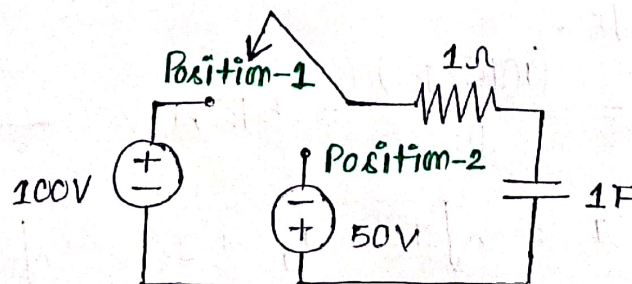 1Ω
Position-1
Position-2
100V
+
−
−
+
50V
1F